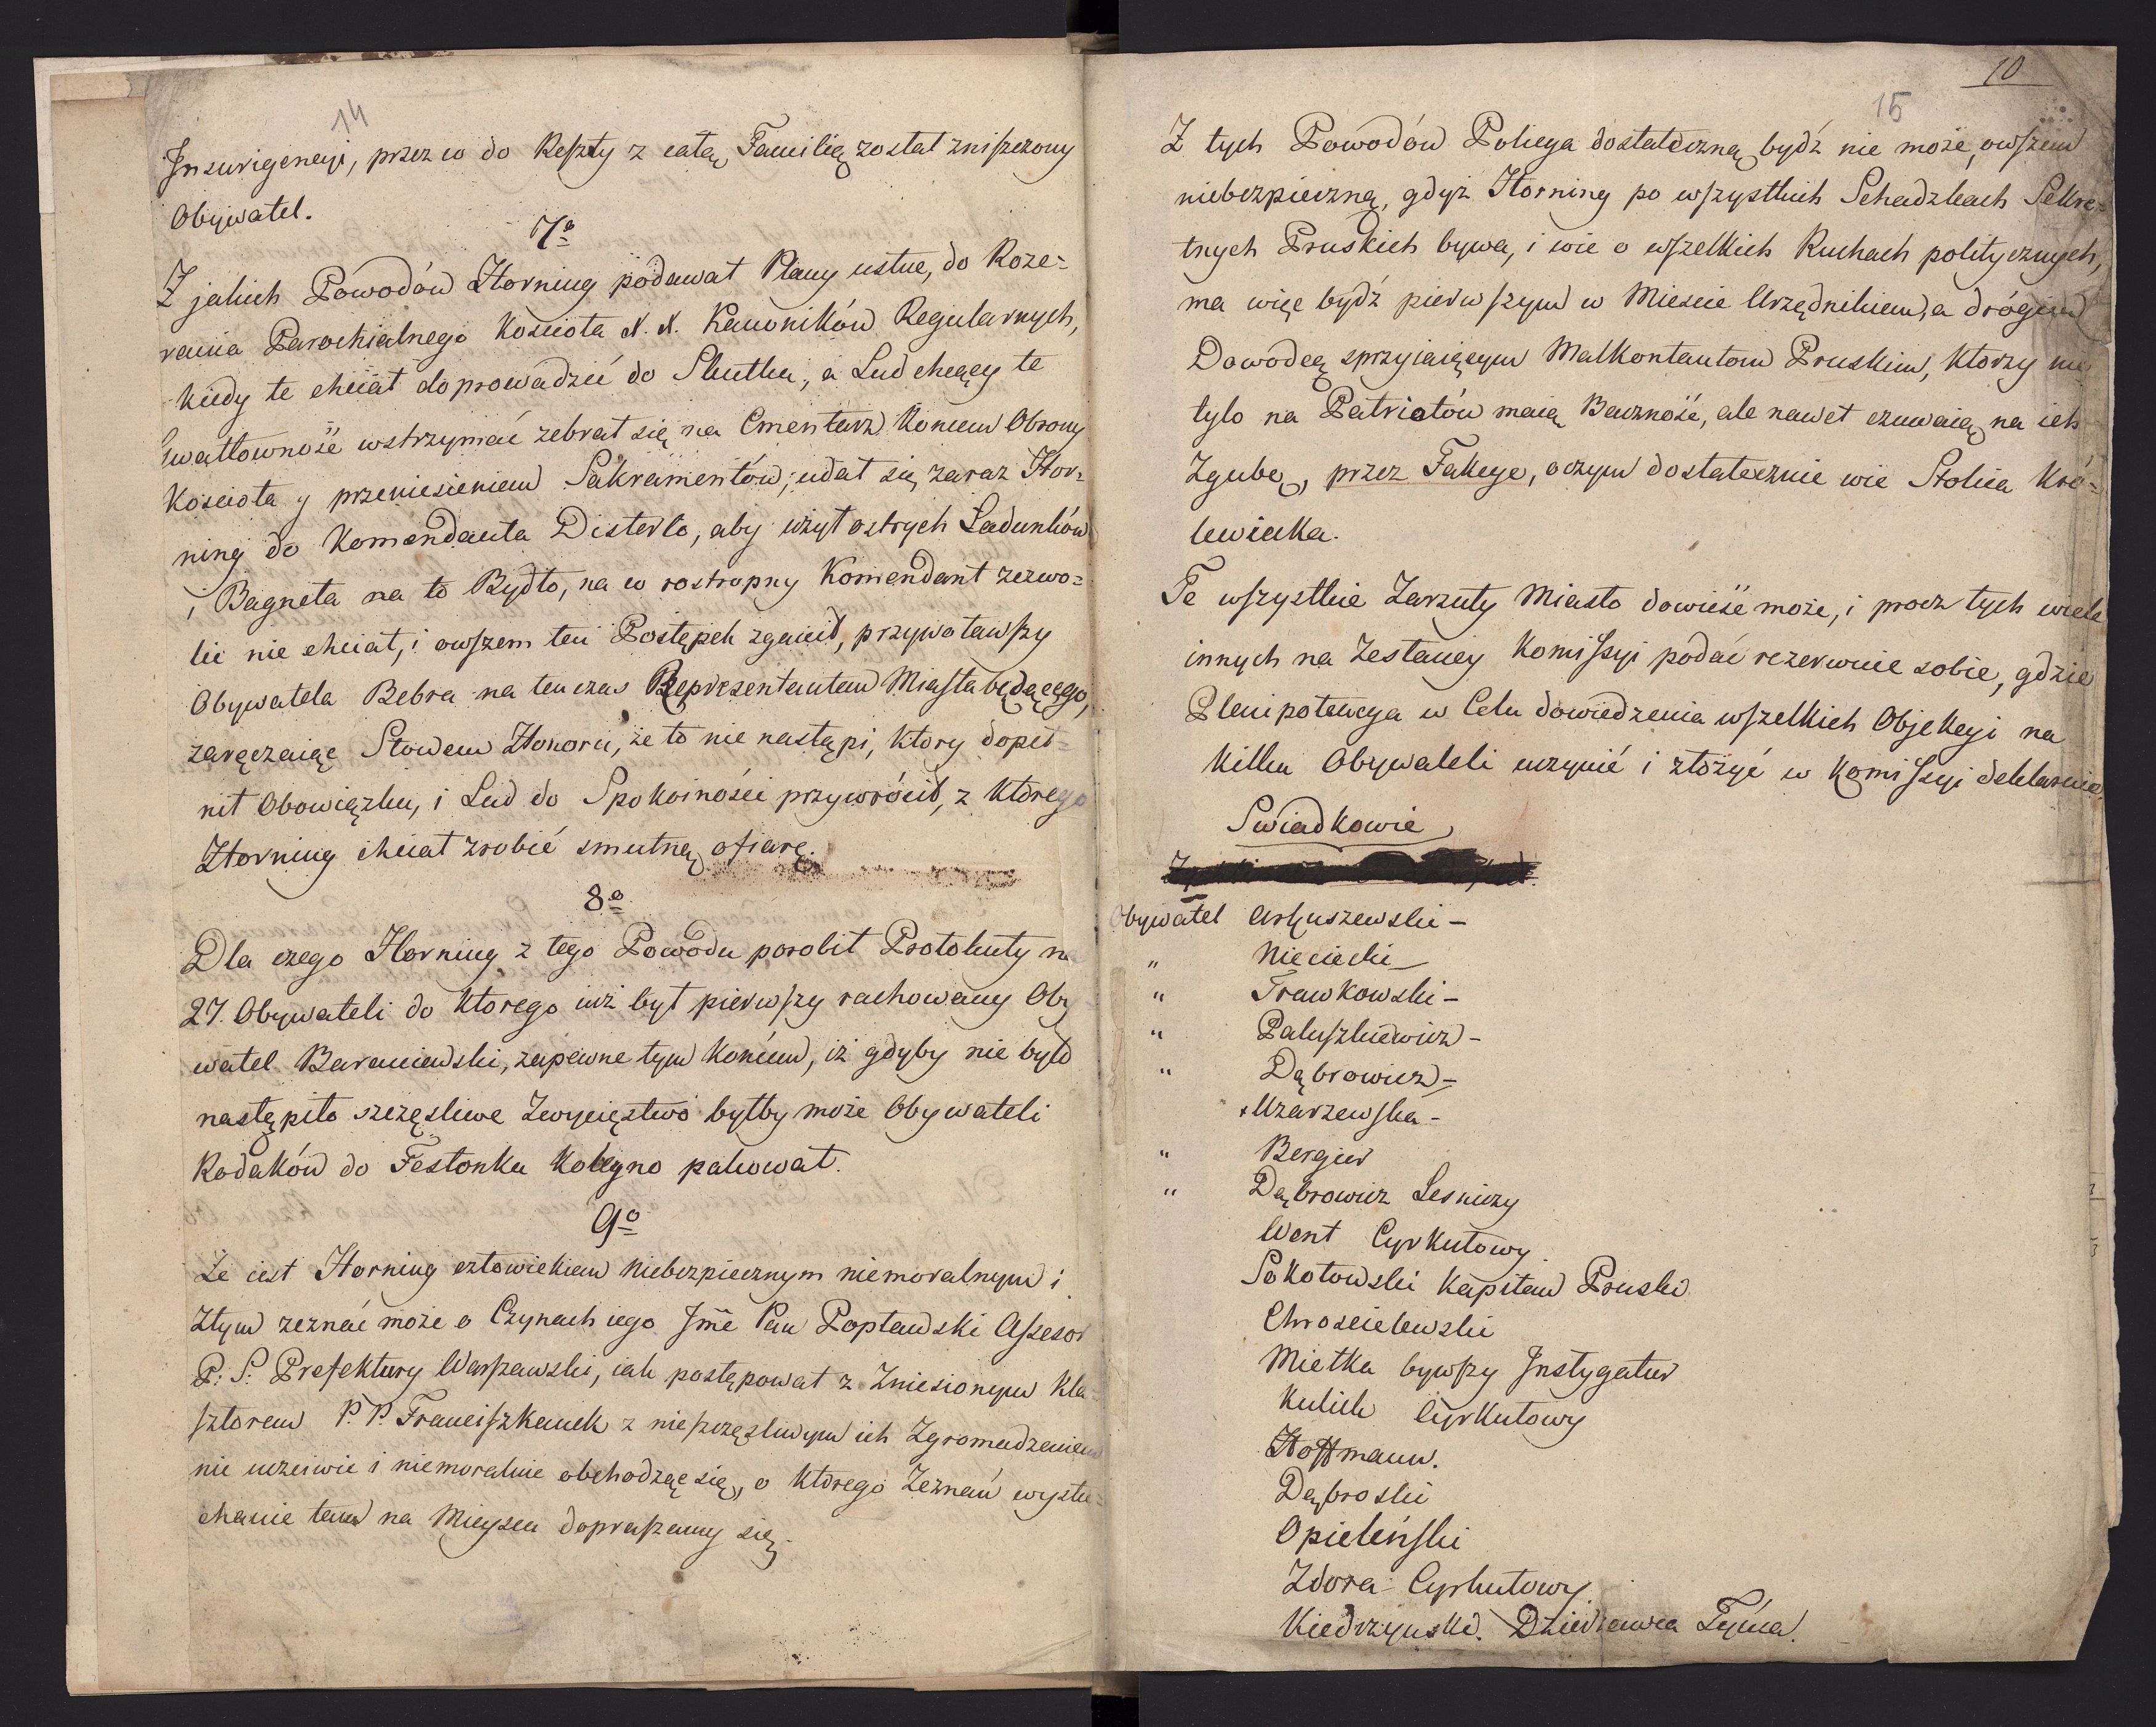 14
Insurigencyi, przez co do Reszty z całą Familią został zniszczony
Obywatel.
7o
Z jakich Powodów Horning podawał Plany ustne, do Roze-
rania Parochialnego Kościoła X. X. Kanoników Regularnych,
kiedy te chciał doprowadzić do Skutku, a Lud chcący te
Gwałtowność wstrzymać zebrał się na Cmentarz Koncem Obrony
Kościoła y przeniesieniem Sakramentów; udał się zaraz Hor-
ning do Komendanta Disterlo, aby użył ostrych Ładunków
i Bagneta na to Bydło, na co rostropny Komendant zezwo-
lić nie chciał, i owszem ten Postępek zganił, przywoławszy
Obywatela Bebra na tenczas Reprezentantem Miasta będącego,
zaręczaiąc Słowem Honoru, że to nie nastąpi, ktory dopeł-
nił Obowiązku, i Lud do Spokoiności przywrócił, z ktorego
Horning chciał zrobić smutną ofiarę.
8o
Dla czego Horning z tego Powodu porobił Protokuły na
27. Obywateli do ktorego iuż był pierwszy rachowany Oby
watel Baraniewski, zapewne tym Koncem, iż gdyby nie było
nastąpiło szczęsliwe Zwycięstwo byłby może Obywateli
Rodaków do Festonku Kolegno pakował.
9o
Że iest Horning człowiekiem niebezpiecznym niemoralnym i
złym zeznać może o Czynach iego Jme Pan Popławski Assesor
P: S: Prefektury Warszawski, iak postępował z Zniesionym Kla-
sztorem P. P. Franciszkanek z nieszczęsliwym ich Zgromadzeniem
nie uczciwie i niemoralnie obchodząc się, o ktorego Zeznań wysłu-
chanie tam na Mieyscu dopraszamy się.
10
15
Z tych Powodów Policya dostateczną bydź nie może, owszem
niebezpieczną, gdyż Horning po wszystkich Schadzkach Sekre-
tnych Pruskich bywa, i wie o wszelkich Ruchach politycznych,
ma więc bydź pierwszym w Miescie Urzędnikiem, a drógim
Dowodcą sprzyiaiącym Malkontantom Pruskim, ktorzy nie
tylo na Patriotów maią Baczność, ale nawet czuwaią na ich
Zgubę, przez Fakcye, o czym dostatecznie wie Stolica Kró-
lewiecka.
Te wszystkie Zarzuty Miasto dowieść może, i procz tych wiele
innych na Zesłaney Komissyi podać rezerwuie sobie, gdzie
Plenipotencya w Celu dowiedzenia wszelkich Objekcyi na
kilku Obywateli uczynić i złożyć w Komissyi deklaruie.
Swiadkowie
Obywatel Arkuszewski -
" Nieciecki -
" Trawkowski -
" Paluszkiewicz -
" Dąbrowicz -
+ Uzarzewska -
" Bergier
" Dąbrowicz Lesniczy
Went Cyrkułowy
Sokołowski Kapitan Pruski
Chroscielewski
Mietka bywszy Instygator
Kulich Cyrkułowy
Hoffmann.
Dąbroski
Opieleński
Zdora Cyrkułowy
Kiedrzynski. Dzierzawca Tyńca.